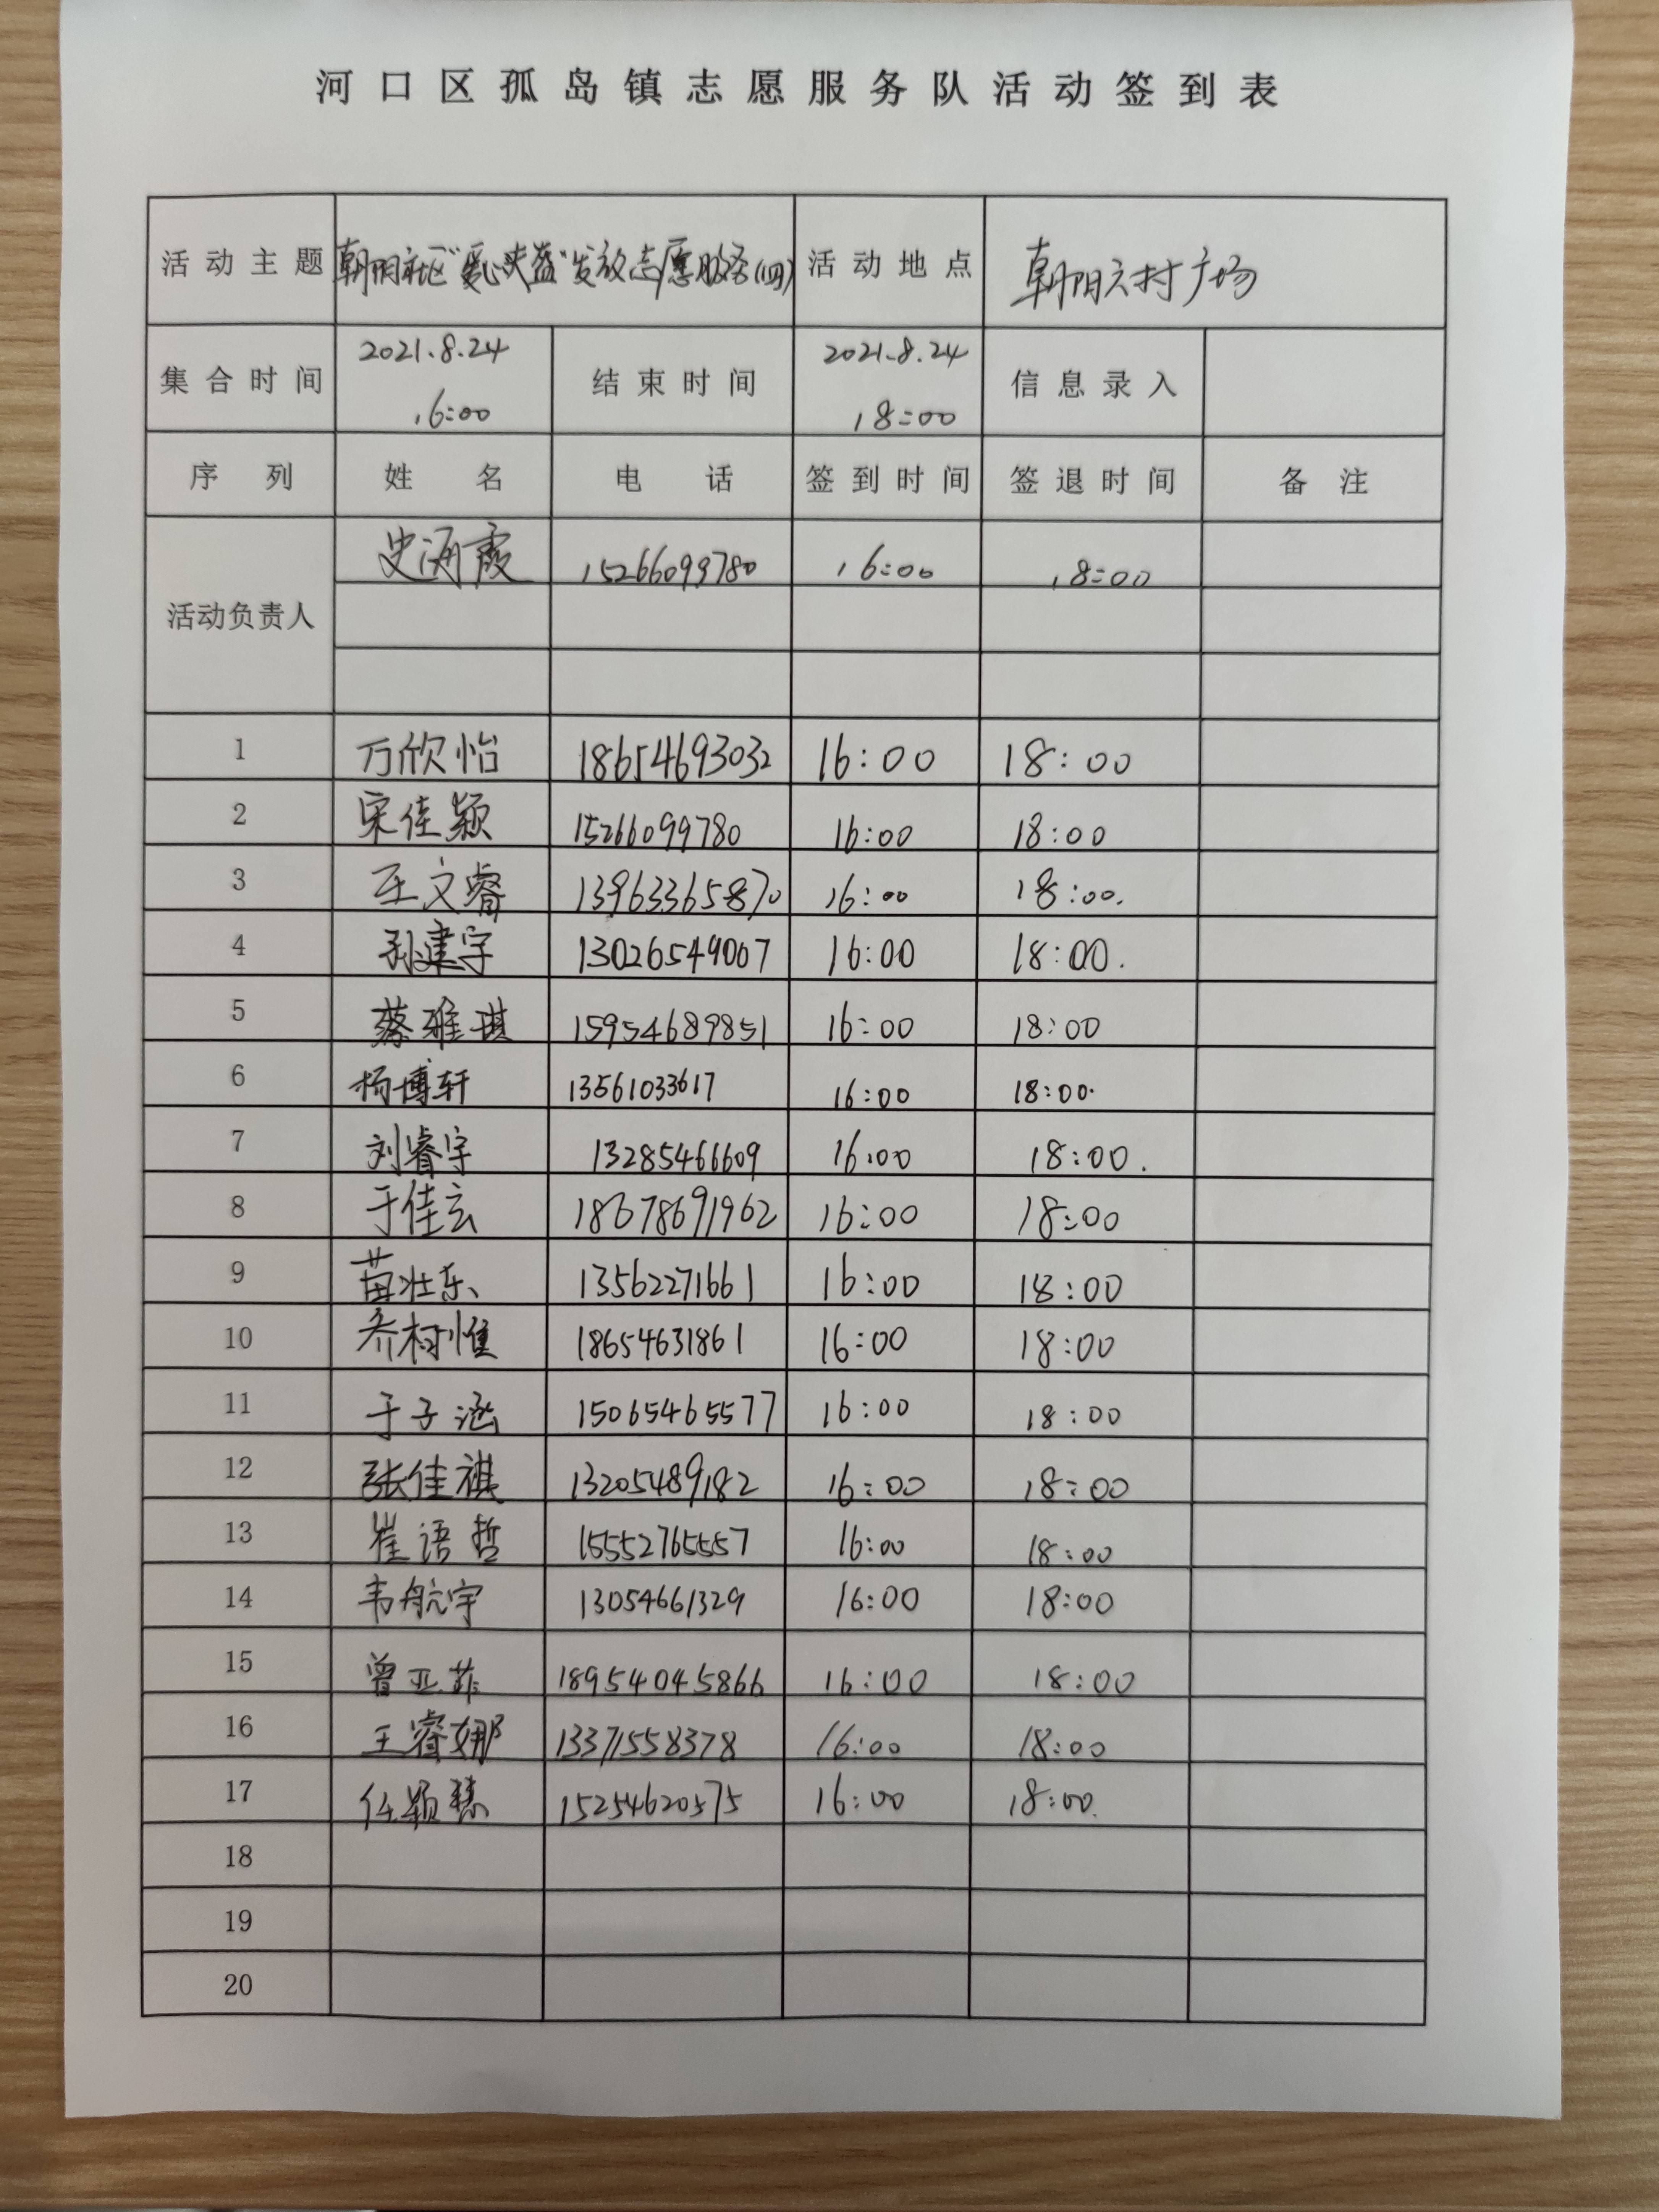 河口区孤岛镇志愿服务队活动签到表
活动主题 朝阳社区“爱心头盔”发放志愿服务(四) 活动地点 朝阳六村广场
集合时间 2021.8.24 16:00 结束时间 2021.8.24 18:00 信息录入
序列 姓名 电话 签到时间 签退时间 备注
活动负责人 史海霞 15266099780 16:00 18:00
1 万欣怡 18654693032 16:00 18:00
2 宋佳颖 15266099780 16:00 18:00
3 王文睿 13963365870 16:00 18:00.
4 孙建宇 13026549007 16:00 18:00.
5 蔡雅琪 15954689851 16:00 18:00
6 杨博轩 13561033617 16:00 18:00.
7 刘睿宇 13285466609 16:00 18:00.
8 于佳云 18678691962 16:00 18:00
9 苗壮东 13562271661 16:00 18:00
10 乔树惟 18654631861 16:00 18:00
11 于子涵 15065465577 16:00 18:00
12 张佳祺 13205489182 16:00 18:00
13 崔语哲 15552765557 16:00 18:00
14 韦航宇 13054661329 16:00 18:00
15 曾亚菲 18954045866 16:00 18:00
16 王睿娜 13371558378 16:00 18:00
17 任颖慧 15254620575 16:00 18:00.
18
19
20